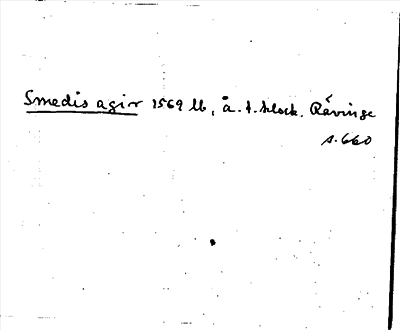 Smedis agir 1569 lb, å. t. klock. Rävinge
s. 660